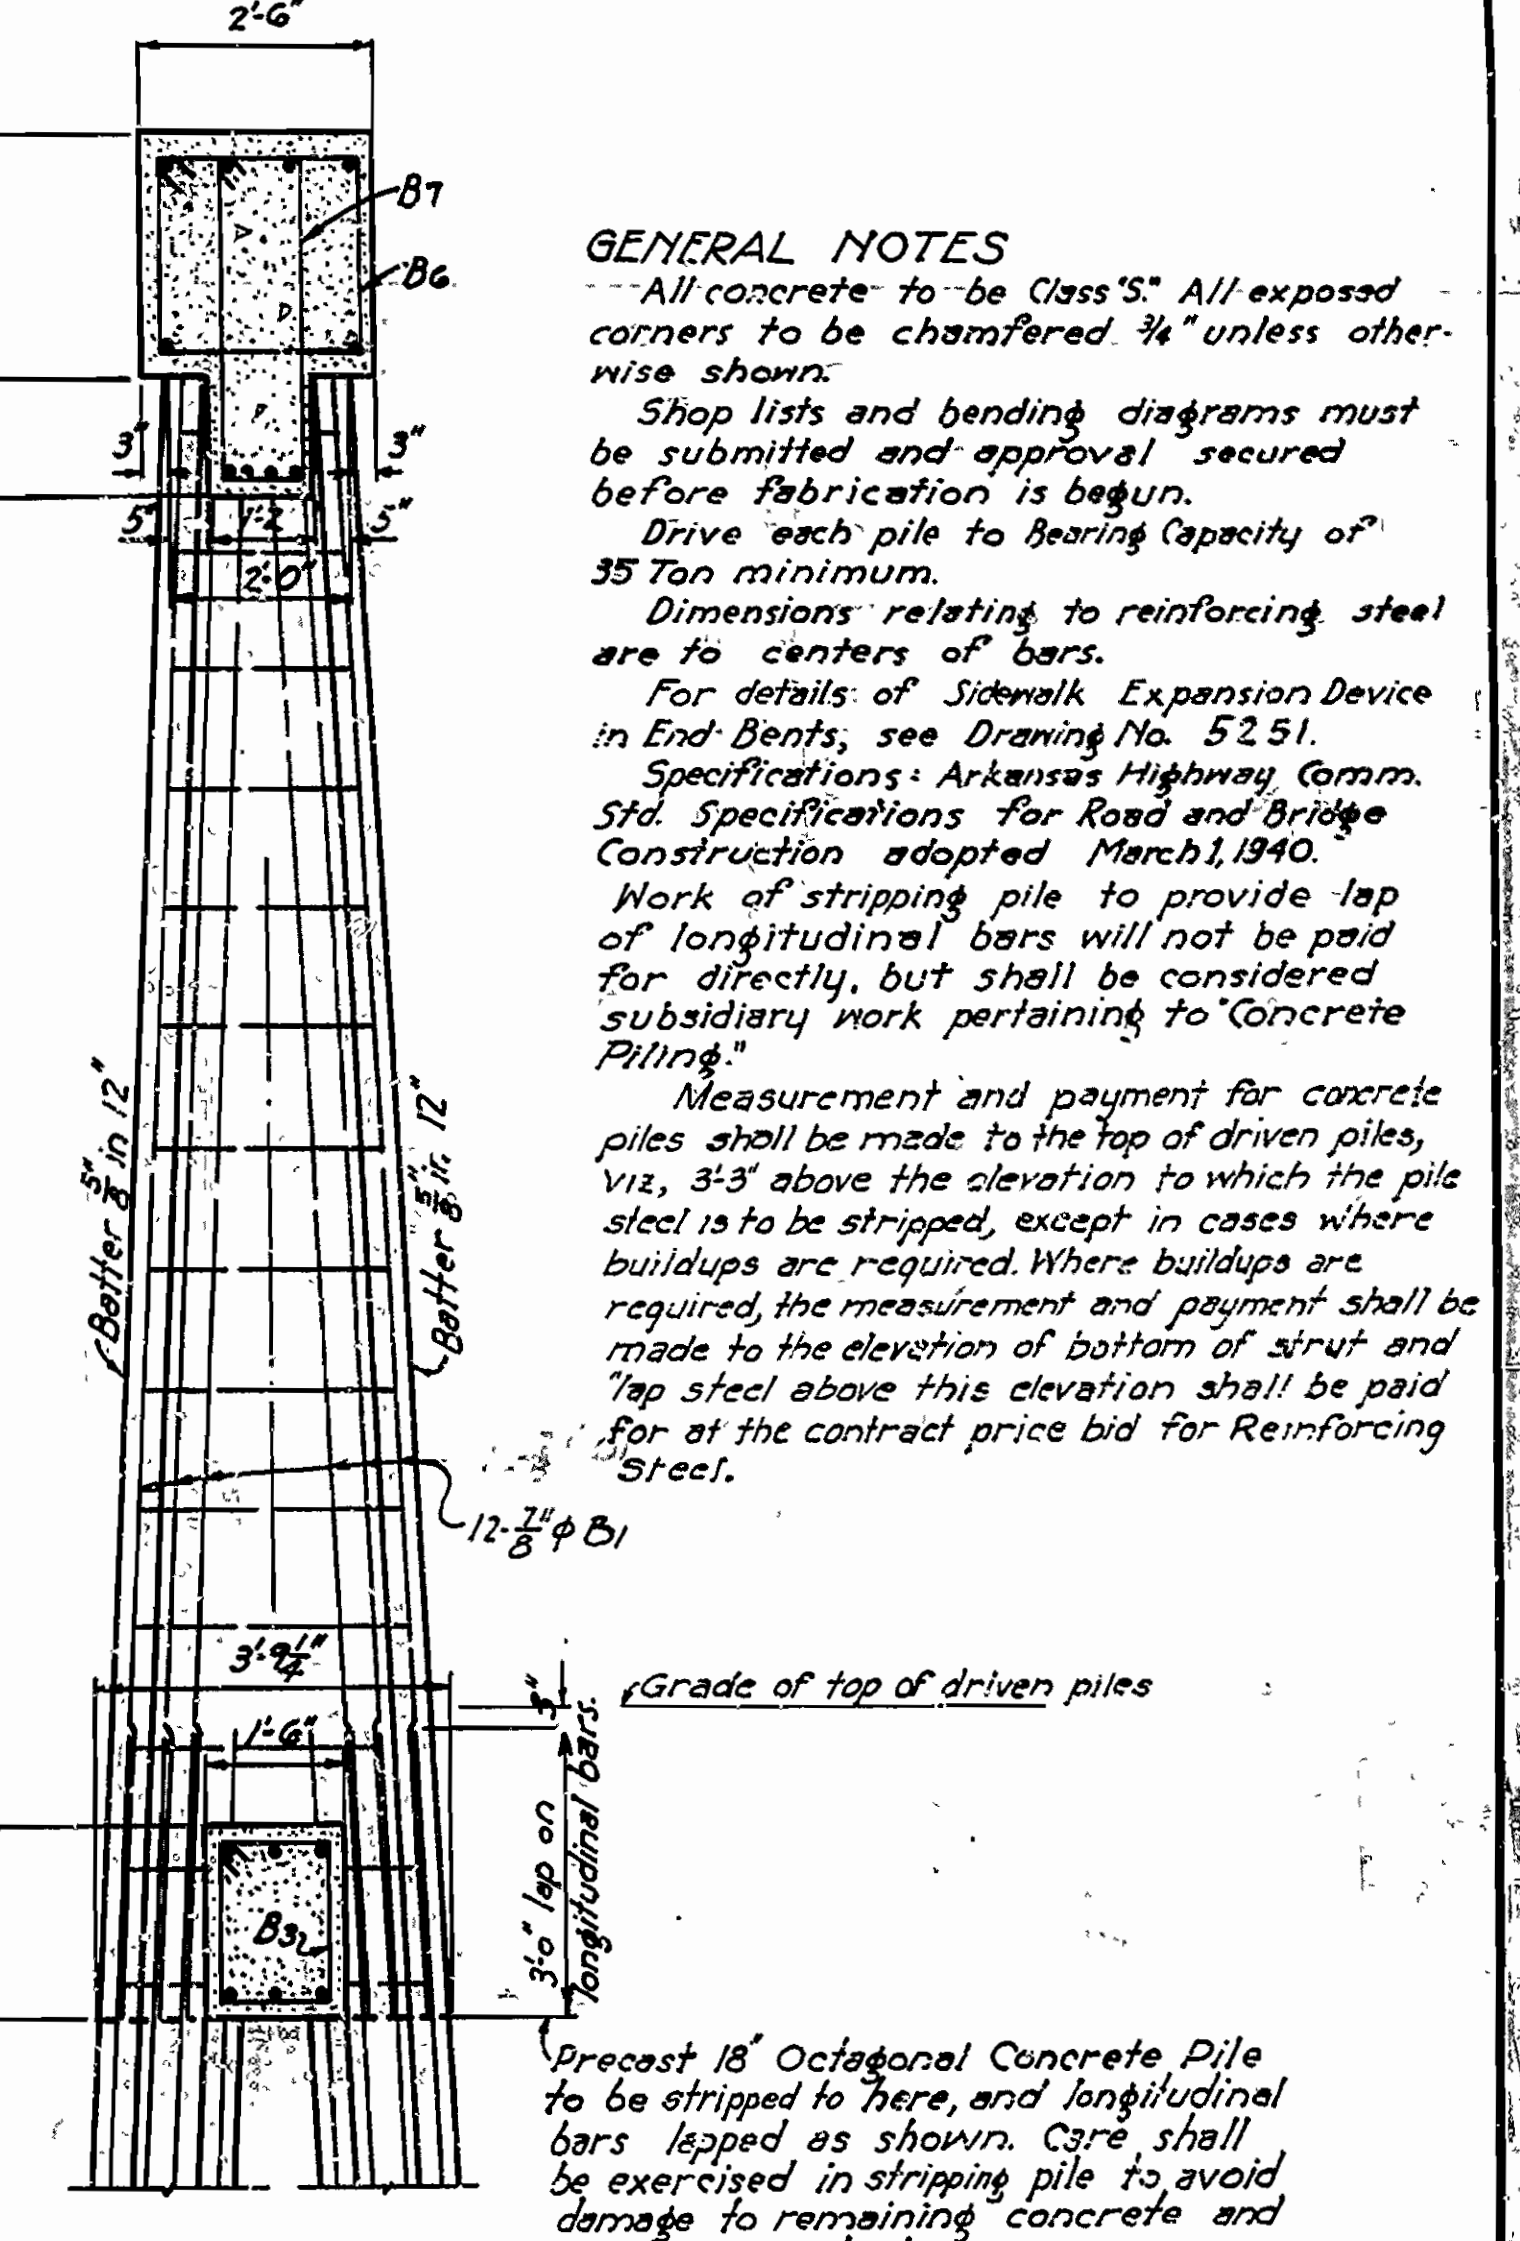 2'-6"
B7
B6
3"
3"
5"
1'-2
5"
2'-0"
Batter 5/8" in 12"
Batter 5/8" in 12"
12-7/8"φ B1
3'-9 1/4"
1'-6"
B32
3"
3'-0" lap on
longitudinal bars.
GENERAL NOTES
All concrete to be Class "S." All exposed
corners to be chamfered 3/4" unless other-
wise shown.
Shop lists and bending diagrams must
be submitted and approval secured
before fabrication is begun.
Drive each pile to Bearing Capacity of
35 Ton minimum.
Dimensions relating to reinforcing steel
are to centers of bars.
For details of Sidewalk Expansion Device
in End Bents, see Drawing No. 5251.
Specifications: Arkansas Highway Comm.
Std. Specifications for Road and Bridge
Construction adopted March 1, 1940.
Work of stripping pile to provide lap
of longitudinal bars will not be paid
for directly, but shall be considered
subsidiary work pertaining to "Concrete
Piling."
Measurement and payment for concrete
piles shall be made to the top of driven piles,
viz, 3'-3" above the elevation to which the pile
steel is to be stripped, except in cases where
buildups are required. Where buildups are
required, the measurement and payment shall be
made to the elevation of bottom of strut and
"lap steel above this elevation shall be paid
for at the contract price bid for Reinforcing
Steel.
Grade of top of driven piles
Precast 18" Octagonal Concrete Pile
to be stripped to here, and longitudinal
bars lapped as shown. Care shall
be exercised in stripping pile to avoid
damage to remaining concrete and